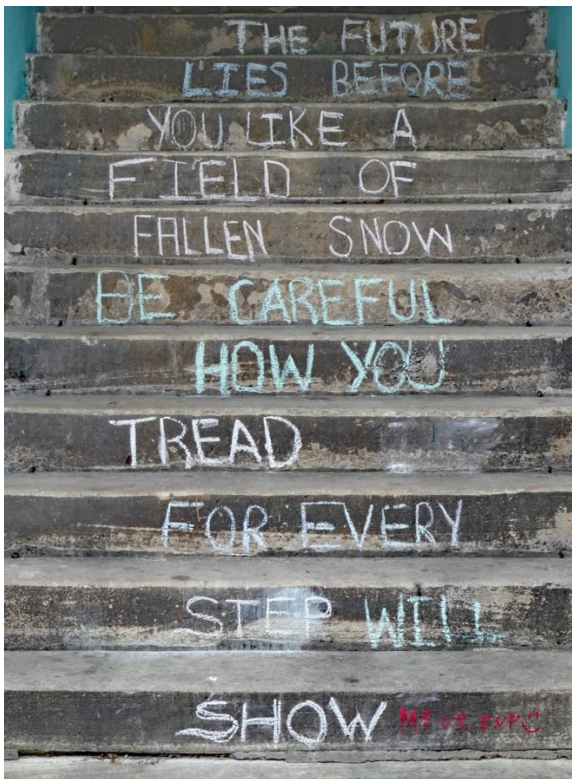 THE FUTURE
LIES BEFORE
YOU LIKE A
FIELD OF
FALLEN SNOW
BE CAREFUL
HOW YOU
TREAD
FOR EVERY
STEP WILL
SHOW